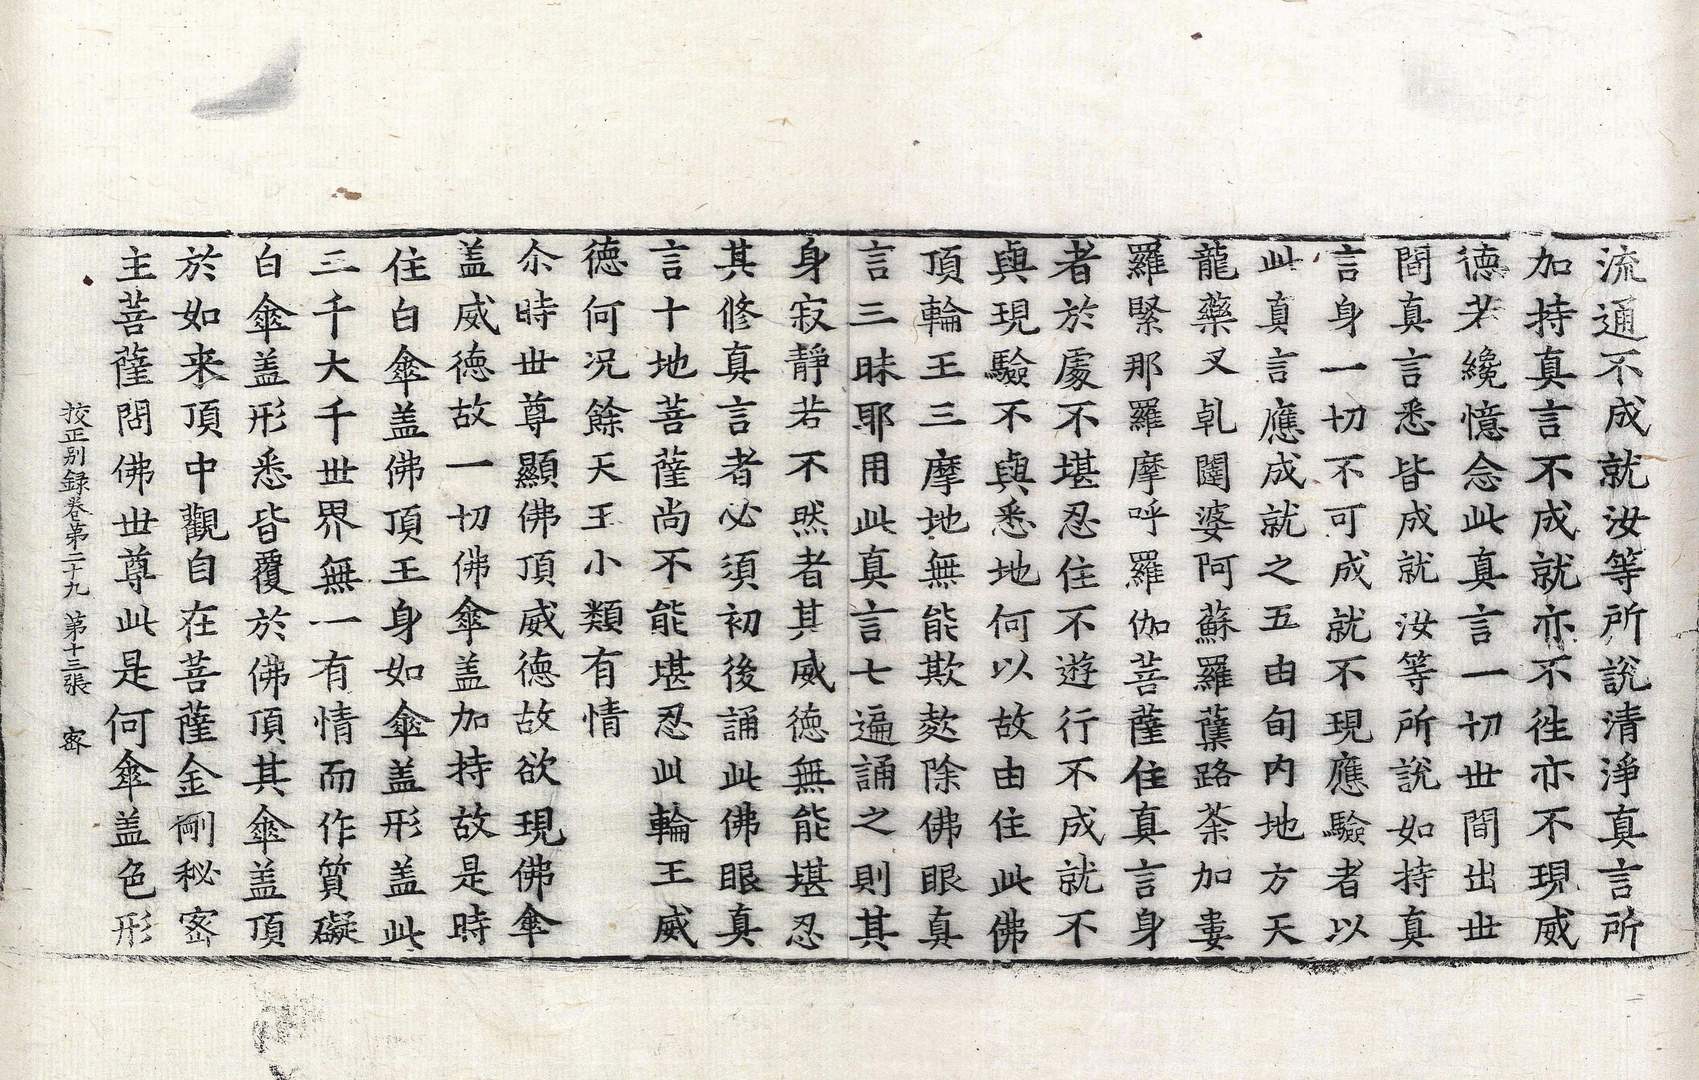 流通不成就汝等所説清淨真言所
加持真言不成就亦不徃亦不現威
德若纔憶念此真言一切世間出世
間真言悉皆成就汝等所説如持真
言身一切不可成就不現應驗者以
此真言應成就之五由旬内地方天
龍藥叉乹闥婆阿蘇羅羅蘖路荼加婁
羅緊那羅摩呼羅伽菩薩住真言身
者於處不堪忍住不遊行不成就不
與現驗不與悉地何以故由住此佛
頂輪王三摩地無能欺麧除佛眼真
言三昧耶用此真言七遍誦之則其
身寂靜若不然者其威德無能堪忍
其修真言者必須初後誦此佛眼真
言十地菩薩尚不能堪忍此輪王威
德何况餘天王小類有情
尒時世尊顯佛頂威德故欲現佛傘
盖威德故一切佛傘盖加持故是時
住白傘盖佛頂王身如傘盖形盖此
三千大千世界無一有情而作質礙
白傘盖形悉皆覆於佛頂其傘盖頂
於如来頂中觀自在菩薩金剛秘宻
主菩薩問佛世尊此是何傘盖色形
挍正别録卷第二十九 第十三張 宻